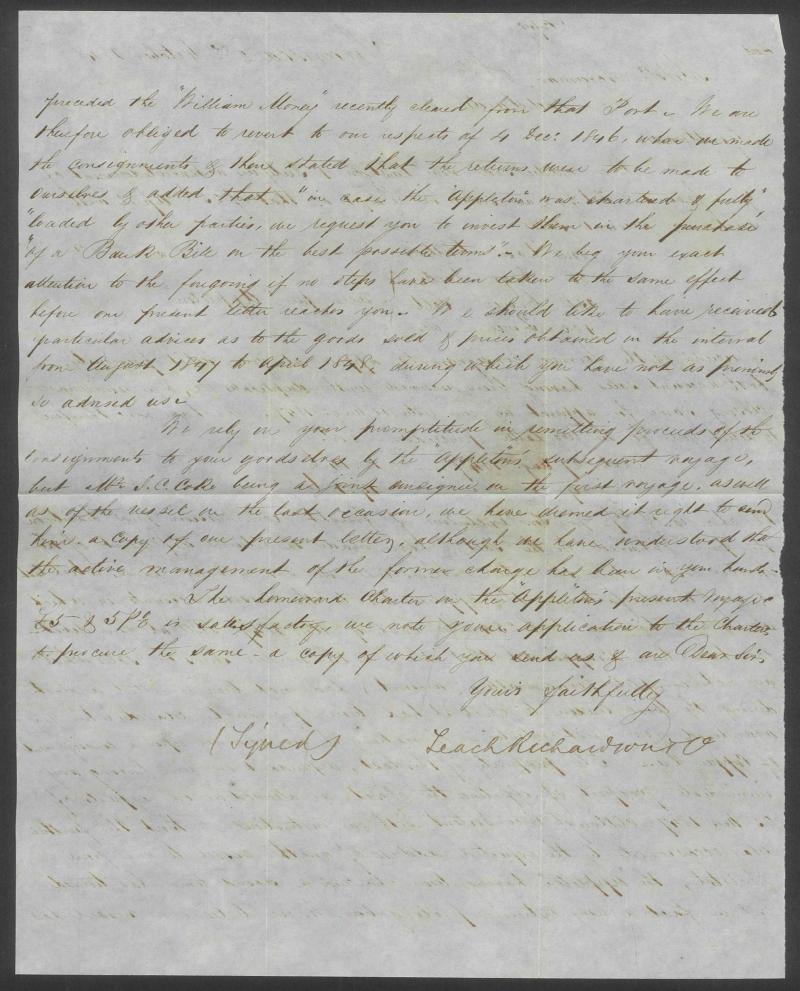 preceded the "William Money" recently cleared from that Port. We are
therefore obliged to revert to our respects of 4 Dec: 1846, when we made
the consignments & then stated that the returns were to be made to
ourselves & added that "in case the "Appleton" was chartered & fully"
"loaded by other parties, we request you to invest them in the purchase
"of a Bank Bill on the best possible terms". We beg your exact
attention to the foregoing if no steps have been taken to the same effect
before our present letter reaches you. We should like to have received
particular advices as to the goods sold & prices obtained in the interval
from August 1847 to April 1848, during which you have not as previously
so advised us.
We rely on your promptitude in remitting proceeds of the
consignments to your goodselves by the Appleton's subsequent voyage,
but Mr. S. C. Coke being a joint consignee on the first voyage, as well
as of the vessel on the last occasion, we have deemed it right to send
him a copy of our present letter, although we have understood that
the active management of the former charge has been in your hands.
The homeward Charter on the "Appleton's present voyage
£5 & 5 P Ct is satisfactory, we note your application to the Charterers
to procure the same - a copy of which you send us & are Dear Sir,
Yours faithfully
(Signed) Leach Richardson & Co